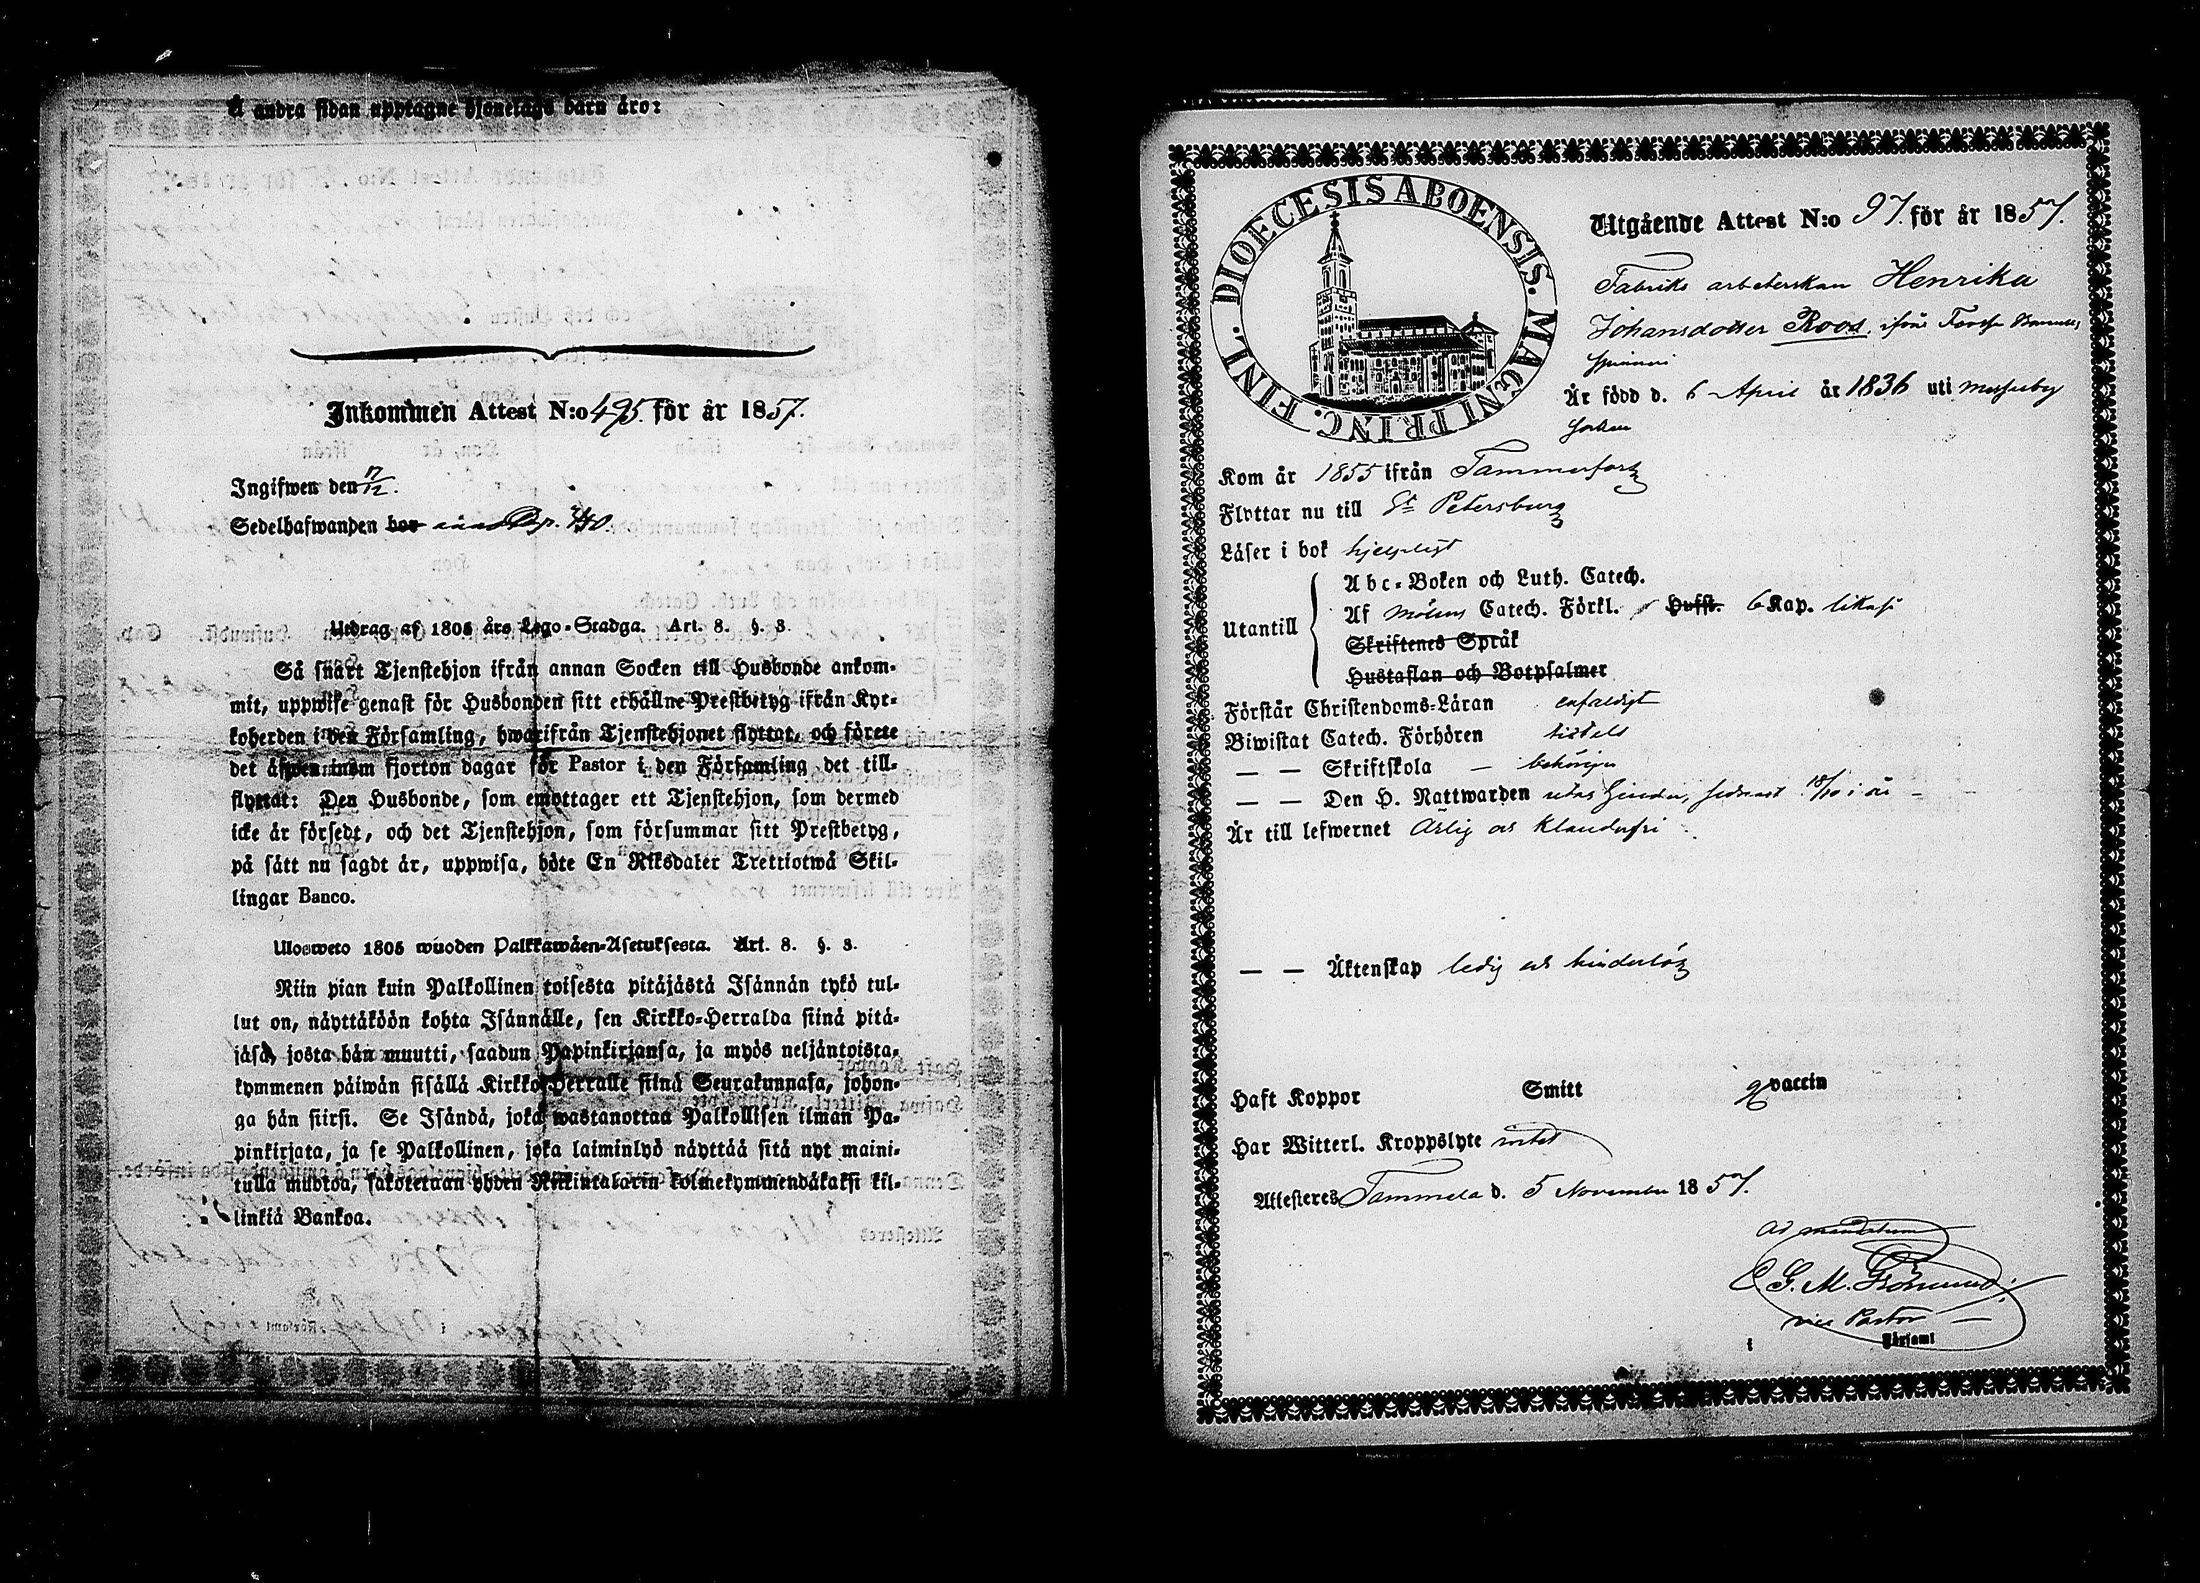 Å andra sidan upptagne hjonelags barn äro:
Inkommen Attest N:o 495. för år 1857.
Ingifwen den 17/12.
Sedelhafwanden bor
Utdrag af 1805 års Lego-Stadga. Art. 8. §. 3.
Så snart Tjenstehjon ifrån annan Socken till Husbonde ankom-
mit, uppwise genast för Husbonden sitt erhållne Prestbetyg ifrån Kyr-
koherden i den Församling, hwarifrån Tjenstehjonet flyttat, och förete
det äfwen inom fjorton dagar för Pastor i den Församling det till-
flyttat: Den Husbonde, som emottager ett Tjenstehjon, som dermed
icke är försedt, och det Tjenstehjon, som försummar sitt Prestbetyg,
på sätt nu sagdt är, uppwisa, böte En Riksdaler Trettiotwå Skil-
lingar Banco.
Ulosweto 1805 wuoden Palkkawäen-Asetuksesta. Art. 8. §. 3.
Niin pian kuin Palkollinen toisesta pitäjästä Isännän tykö tul-
lut on, näyttäköön kohta Isännälle, sen Kirkko-Herralda siinä pitä-
jäsä, josta hän muutti, saadun Papinkirjansa, ja myös neljäntoista-
kymmenen päiwän sisällä Kirkko-Herralle siinä Seurakunnasa, johon-
ga hän siirsi. Se Isändä, joka wastanottaa Palkollisen ilman Pa-
pinkirjata, ja se Palkollinen, joka laiminlyö näyttää sitä nyt maini-
tulla muotoa, sakotetaan yhden Riikintalarin kolmekymmendäkaksi kil-
linkiä Bankoa.
DIOECESIS ABOENSIS. MAGNI PRINC. FINL.
Utgående Attest N:o 97. för år 1857.
Fabriks arbeterskan Henrika
Johansdotter Roos, ifrån Forssa Bomulls
spinneri
Är född d. 6 April år 1836 uti Messuby
socken
Kom år 1855 ifrån Tammerfors
Flyttar nu till St Petersburg
Läser i bok hjelpligt
Utantill
Abc-Boken och Luth. Catech.
Af Catech. Förkl. Hufst. 6 Kap. likaså
Skriftenes Språk
Hustaflan och Botpsalmer
Förstår Christendoms-Läran enfaldigt
Biwistat Catech. Förhören
— — Skriftskola — behörigen
— — Den H. Nattwarden utan hinder, sednast 18/10 i år —
Är till lefwernet Ärlig och klanderfri
— — Äktenskap ledig och hinderlös
Haft Koppor Smitt vaccin
Har Witterl. Kroppslyte intet
Attesteres Tammela d. 5 November 1857.
Ad mandatum
vice Pastor —
i Församl